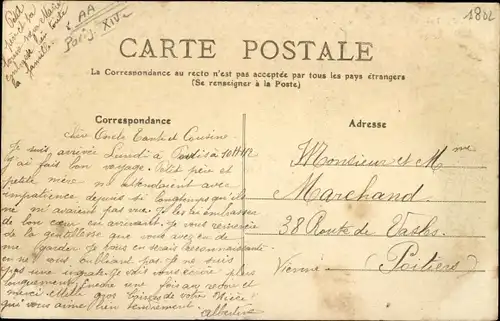 1802
AA
Paris XIV
CARTE POSTALE
La Correspondance au recto n'est pas acceptée par tous les pays étrangers
(Se renseigner à la Poste)
Correspondance
chère Oncle Tante et Cousine
Je suis arrivée Lundi à Paris à 10H
j'ai fait bon voyage. Petit père et
petite mère attendaient avec
impatience depuis si longtemps qu'ils
ne m'avaient pas vue. Je les ai embrassés
de bon cœur en arrivant. Je vous remercie
de la gentillesse que vous avez eu de
me garder. Je vous en serais reconnaissante
en ne vous oubliant pas. Je ne suis
pas une ingrate. Je vais vous écrire plus
longuement. Encore une fois au revoir et
merci. Mille gros baisers de votre Nièce
qui vous aime bien tendrement. Albertine
Adresse
Monsieur et Mme
Marchand
38 Route de Vasles
Vienne (Poitiers)